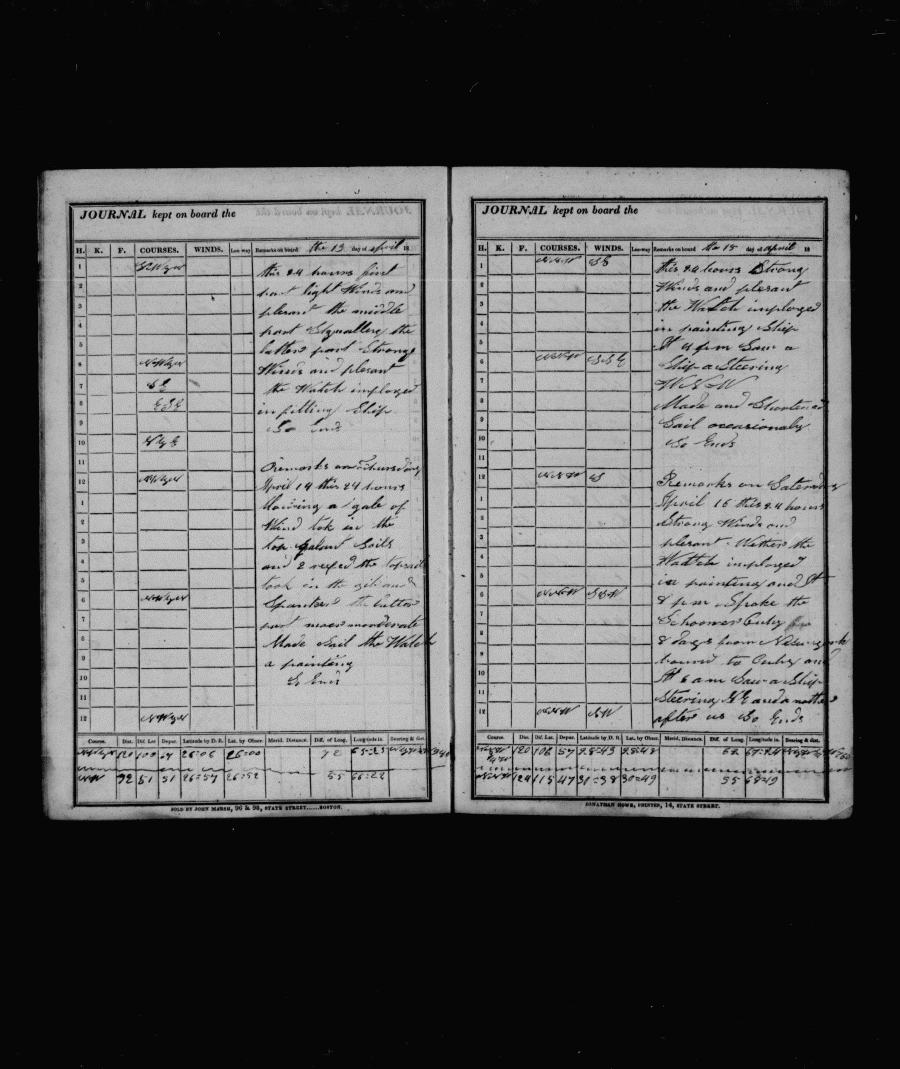 JOURNAL kept on board the
H. K. F. COURSES. WINDS. Lee-way Remarks on board the 13 day of april 18
1
this 24 hours first
2
part light Winds and
3
plesant the middle
4
part Squallery the
5
latter part Strong
6 NWbyW
Winds and plesant
7 SE
the Watch imployed
8 ESE
in fitting Ship
9
So Ends
10 NbyE
11
Remarks on Thursday
12 NWbyW
April 14 this 24 hours
1
blowing a gale of
2
Wind tok in the
3
top galant Sails
4
and 2 reefed the topsails
5
took in the gib and
6 NWbyW
Spanker the latter
7
part more moderate
8
Made Sail the Watch
9
a painting
10
So Ends
11
12 NWbyW
Course. Dist. Dif. Lat. Depar. Latitude by D. R. Lat. by Obser. Merid. Distance. Dif. of Long. Longitude in. Bearing & dist.
120 100 26=06 26=00 72 65=25
NW 72 51 51 26=57 26=52 55 66=22
SOLD BY JOHN MARSH, 96 & 98, STATE STREET......BOSTON.
JOURNAL kept on board the
H. K. F. COURSES. WINDS. Lee-way Remarks on board the 15 day of april 18
1 NNW SE
this 24 hours Strong
2
Winds and plesant
3
the Watch imployed
4
in painting Ship
5
At 4 pm Saw a
6 SSE
Ship a Steering
7
WNW
8
Made and Shortened
9
Sail occasionaly
10
So Ends
11
12 NNW S
Remarks on Saterday
1
April 16 this 24 hours
2
Strong Winds and
3
plesant Wether the
4
Wattch imployed
5
in painting and At
6 NNW SSW
8 pm Spoke the
7
Schooner Cuby
8
8 days from
9
bound to Cuby and
10
At 6 am Saw a Ship
11
Steering NE and a nother
12 NNW SW
after us So Ends
Course. Dist. Dif. Lat. Depar. Latitude by D. R. Lat. by Obser. Merid. Distance. Dif. of Long. Longitude in. Bearing & dist.
120 106 57 28=43 28=48 62 67=24
NNW 124 115 47 31=38 30=49 55 68=19
JONATHAN HOWE, PRINTER, 14, STATE STREET.